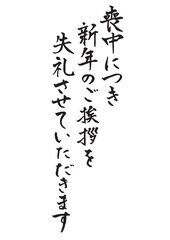 喪中につき
新年のご挨拶を
失礼させていただきます